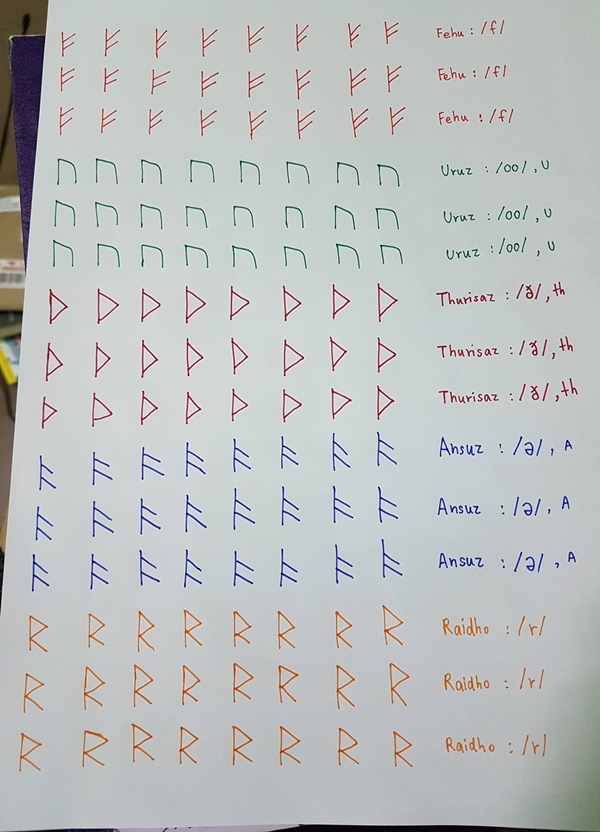 ᚠ ᚠ ᚠ ᚠ ᚠ ᚠ ᚠ ᚠ Fehu : /f/
ᚠ ᚠ ᚠ ᚠ ᚠ ᚠ ᚠ ᚠ Fehu : /f/
ᚠ ᚠ ᚠ ᚠ ᚠ ᚠ ᚠ ᚠ Fehu : /f/
ᚢ ᚢ ᚢ ᚢ ᚢ ᚢ ᚢ ᚢ Uruz : /oo/, U
ᚢ ᚢ ᚢ ᚢ ᚢ ᚢ ᚢ ᚢ Uruz : /oo/, U
ᚢ ᚢ ᚢ ᚢ ᚢ ᚢ ᚢ ᚢ Uruz : /oo/, U
ᚦ ᚦ ᚦ ᚦ ᚦ ᚦ ᚦ ᚦ Thurisaz : /ð/, th
ᚦ ᚦ ᚦ ᚦ ᚦ ᚦ ᚦ ᚦ Thurisaz : /ð/, th
ᚦ ᚦ ᚦ ᚦ ᚦ ᚦ ᚦ ᚦ Thurisaz : /ð/, th
ᚨ ᚨ ᚨ ᚨ ᚨ ᚨ ᚨ ᚨ Ansuz : /ə/, A
ᚨ ᚨ ᚨ ᚨ ᚨ ᚨ ᚨ ᚨ Ansuz : /ə/, A
ᚨ ᚨ ᚨ ᚨ ᚨ ᚨ ᚨ ᚨ Ansuz : /ə/, A
ᚱ ᚱ ᚱ ᚱ ᚱ ᚱ ᚱ ᚱ Raidho : /r/
ᚱ ᚱ ᚱ ᚱ ᚱ ᚱ ᚱ ᚱ Raidho : /r/
ᚱ ᚱ ᚱ ᚱ ᚱ ᚱ ᚱ ᚱ Raidho : /r/